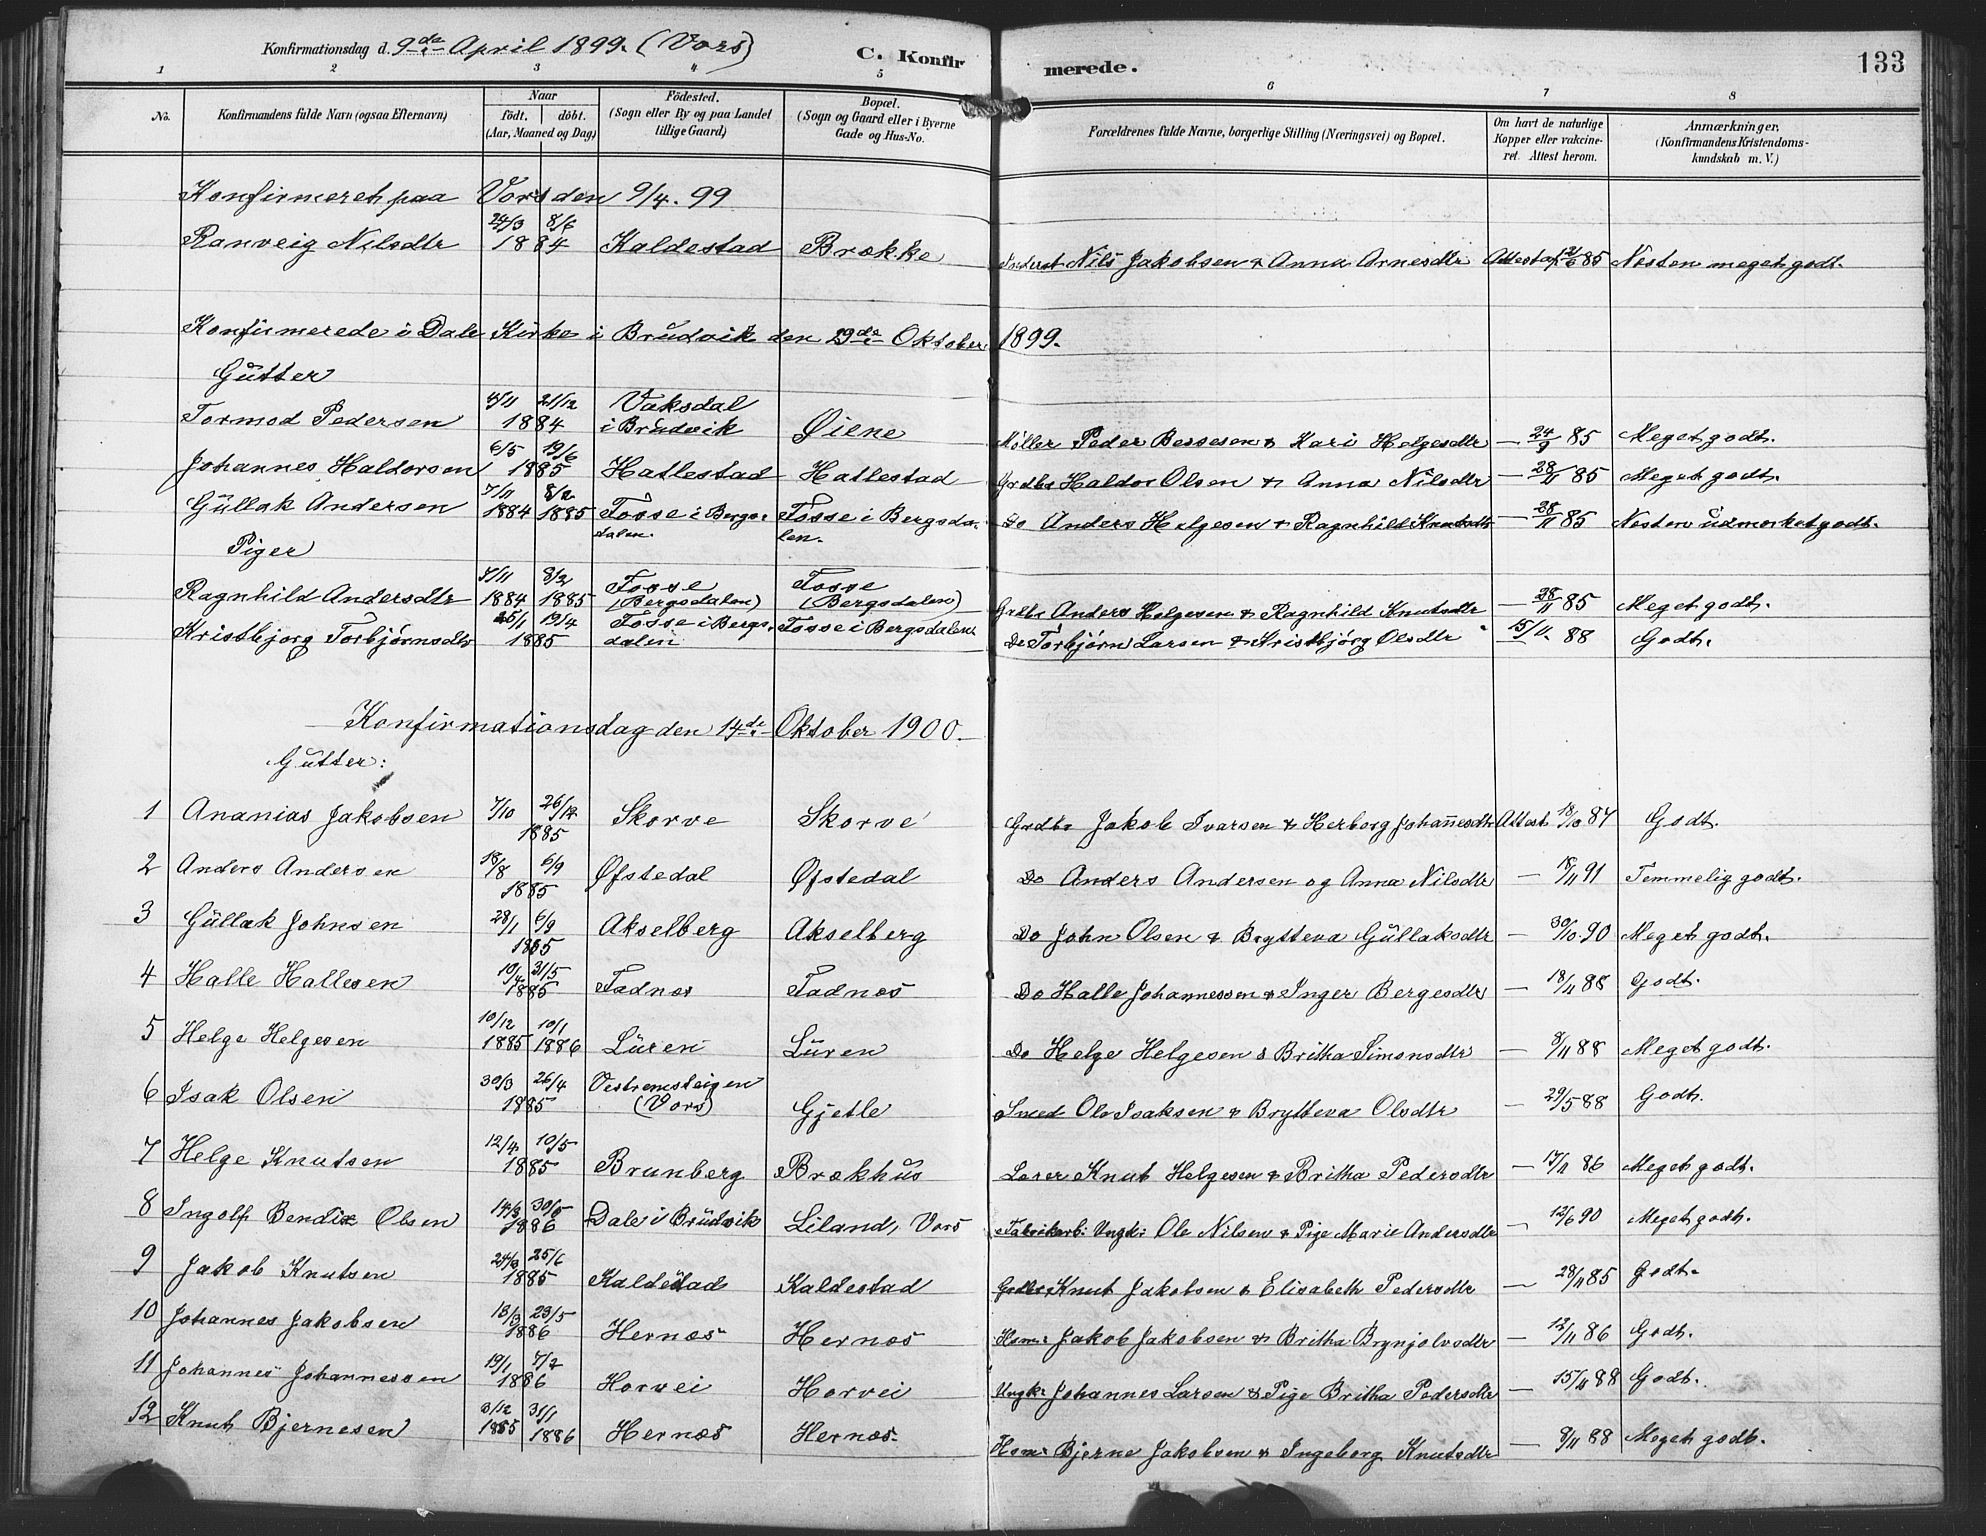 Konfirmationsdag d. 9de April 1899. (Vors) C. Konfirmerede. 133
1 2 3 4 5 6 7 8
No. Konfirmandens fulde Navn (ogsaa Efternavn) Naar födt. döbt. (Aar, Maaned og Dag) Födested. (Sogn eller By og paa Landet tillige Gaard) Bopæl. (Sogn og Gaard eller i Byerne Gade og Hus-No. Forældrenes fulde Navne, borgerlige Stilling (Næringsvei) og Bopæl. Om havt de naturlige Kopper eller vakcineret. Attest herom. Anmærkninger. (Konfirmandens Kristendomskundskab m. V.)
Konfirmeret paa Vors den 9/4. 99
Ranveig Nilsdtr 24/3 8/6 1884 Kaldestad Brække Inderst Nils Jakobsen & Anna Arnesdtr Attest af 85 Næsten meget godt.
Konfirmerede i Dale Kirke i Brudvik den 29de Oktober 1899.
Gutter
Tormod Pedersen 4/11 21/12 1884 Vaksdal i Brudvik Øiene Møller Peder Bessesen & Kari Helgesdtr — 24/9 85 Meget godt.
Johannes Haldorsen 6/5 19/6 1885 Hatlestad Hatlestad Grdbr Haldor Olsen & Anna Nilsdtr — 28/11 85 Meget godt.
Gullak Andersen 7/11 1884 8/2 1885 Fosse i Bergsdalen. Fosse i Bergsdalen. Do Anders Helgesen & Ragnhild Knutsdtr — 28/11 85 Næsten udmærket godt.
Piger
Ragnhild Andersdtr 7/11 1884 8/2 1885 Fosse (Bergsdalen) Fosse (Bergsdalen) Grdbr Anders Helgesen & Ragnhild Knutsdtr — 28/11 85 Meget godt.
Kristbjorg Torbjørnsdtr 25/1 19/4 1885 Fosse i Bergsdalen Fosse i Bergsdalen Do Torbjørn Larsen & Kristbjörg Olsdtr 15/11. 88 Godt.
Konfirmationsdag den 14de Oktober 1900.
Gutter:
1 Ananias Jakobsen 7/10 26/12 1885 Skorve Skorve Grdbr Jakob Ivarsen & Herborg Johannesdtr Attest 18/10 87 Godt.
2 Anders Andersen 18/8 6/9 1885 Øfstedal Øfstedal Do Anders Andersen og Anna Nilsdtr — 18/11 91 Temmelig godt.
3 Gullak Johnsen 28/1 6/9 1885 Akselberg Akselberg Do John Olsen & Brytteva Gullaksdtr — 30/10. 90 Meget godt.
4 Halle Hallesen 10/4 31/5 1885 Fadnes Fadnes Do Halle Johannessen & Inger Bergesdtr — 18/11 88 Godt.
5 Helge Helgesen 10/12 1885 10/1 1886 Luren Luren Do Helge Helgesen & Britha Simonsdtr — 8/11 88 Meget godt.
6 Isak Olsen 30/3 26/4 1885 Vestremsteigen (Vors) Gjetle Smed Ole Isaksen & Brytteva Olsdtr — 29/5 88 Godt.
7 Helge Knutsen 12/4 10/5 1885 Brunberg Brækhus Lærer Knut Helgesen & Britha Pedersdtr — 17/11 86 Meget godt.
8 Ingolf Bendix Olsen 14/3 30/5 1886 Dale i Brudvik Liland, Vors Fabrikarb. Ungk: Ole Nilsen & Pige Marie Andersdtr — 12/6 90 Meget godt.
9 Jakob Knutsen 24/3 25/6 1885 Kaldestad Kaldestad Grdbr. Knut Jakobsen & Elisabeth Pedersdtr — 28/11 85 Godt.
10 Johannes Jakobsen 13/3 23/5 1886 Hernæs Hernæs Hsm: Jakob Jakobsen & Britha Brynjolvsdtr — 12/11 86 Godt.
11 Johannes Johannessen 19/1 7/2 1886 Horvei Horvei Ungk: Johannes Larsen & Pige Britha Pedersdtr — 15/11 88 Godt.
12 Knut Bjernesen 3/12 1885 31/1 1886 Hernæs Hernæs. Hsm: Bjerne Jakobsen & Ingeborg Knutsdtr — 8/11 88 Meget godt.